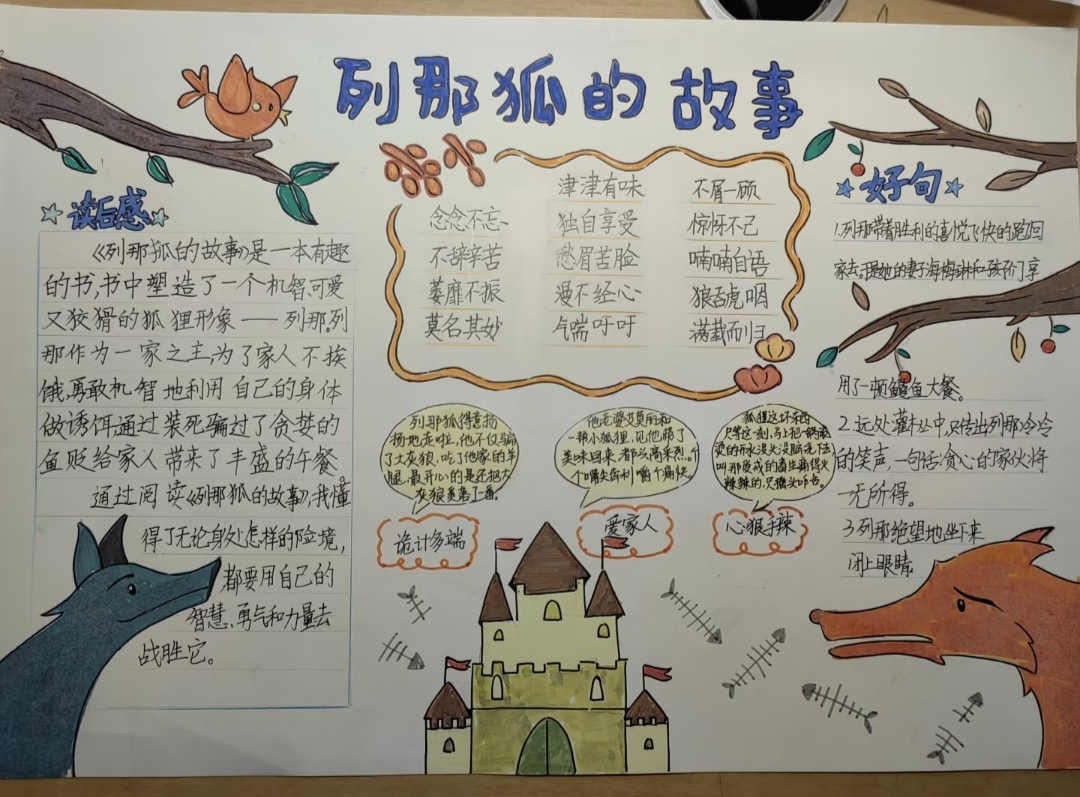 列那狐的故事
读后感
《列那狐的故事》是一本有趣
的书,书中塑造了一个机智可爱
又狡猾的狐狸形象——列那,列
那作为一家之主,为了家人不挨
饿,勇敢机智地利用自己的身体
做诱饵通过装死骗过了贪婪的
鱼贩给家人带来了丰盛的午餐
通过阅读《列那狐的故事》,我懂
得了无论身处怎样的险境,
都要用自己的
智慧、勇气和力量去
战胜它。
津津有味 不屑一顾
念念不忘、 独自享受 惊讶不已
不辞辛苦 愁眉苦脸 喃喃自语
萎靡不振 漫不经心 狼吞虎咽
莫名其妙 气喘吁吁 满载而归
列那狐得意扬
扬地走啦,他不仅骗
了大灰狼,吃了他家的羊
腿,最开心的是还把大
灰狼美第了一番。
诡计多端
他老婆艾莫丽和
一帮小狐狸,见他将了
美味回来,都兴高采烈,个
个嘴尖齿利,嚼个痛快。
爱家人
狐狸这坏东西
只等这一刻,马上把一锅滚
烫的开水没头没脑浇下去
叫那做戒的畜生痛得火
辣辣的,只摇头咋舌。
心狠手辣
好句
1.列那带着胜利的喜悦飞快的跑回
家去,于是她的妻子海梅琳和孩子们享
用了一顿鳗鱼大餐。
2.远处灌木丛中,又传出列那冷冷
的笑声,一句话:贪心的家伙将
一无所得。
3.列那绝望地坐下来
闭上眼睛。